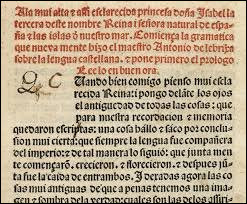 Ala mui alta ⁊ assi esclarecida princesa doña Isabel la
tercera deste nombre Reina i señora natural de espa
ña ⁊ las islas d nuestro mar. Comiença la gramatica
que nueva mente hizo el maestro Antonio de lebrixa
sobre la lengua castellana. ⁊ pone primero el prologo
Lee lo en buen ora.
Cuando bien comigo pienso mui escla
recida Reina: i pongo delante los ojos
el antiguedad de todas las cosas: que
para nuestra recordacion ⁊ memoria
quedaron escriptas: una cosa hállo ⁊ sáco por conclu
sion mui cierta: que siempre la lengua fue compañera
del imperio: ⁊ de tal manera lo siguió: que junta mente
começaron. crecieron. ⁊ florecieron. ⁊ despues jũ
ta fue la caida de entrambos. I deradas agora las cosas
mui antiguas de que a penas tenemos una imagen
⁊ sombra dela verdad: cuales son las delos assiri